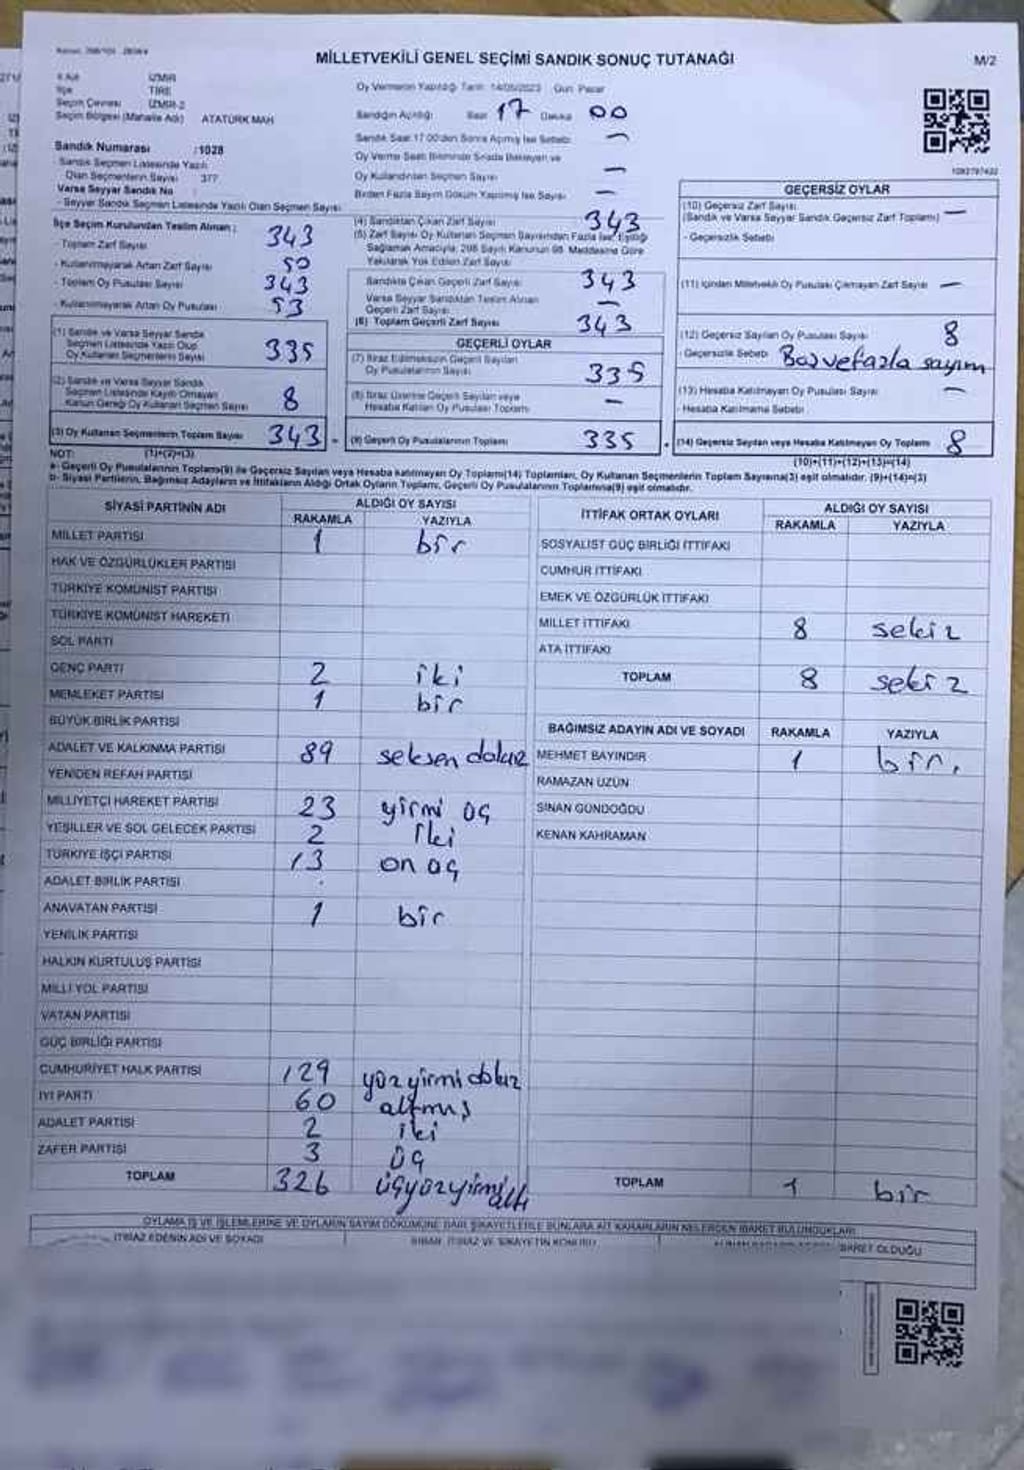 MİLLETVEKİLİ GENEL SEÇİMİ SANDIK SONUÇ TUTANAĞI
M/2
İZMİR
İlçe TİRE
Seçim Çevresi İZMİR-2
Seçim Bölgesi (Mahalle Adı) ATATÜRK MAH
Sandık Numarası :1028
Sandık Seçmen Listesinde Yazılı
Olan Seçmenlerin Sayısı 377
Varsa Seyyar Sandık No
- Seyyar Sandık Seçmen Listesinde Yazılı Olan Seçmen Sayısı
Oy Vermenin Yapıldığı Tarih: 14/05/2023 Gün: Pazar
Sandığın Açılığı Saat 17 Dakika 00
Sandık Saat 17:00'den Sonra Açılmış İse Sebebi —
Oy Verme Saati Bitiminde Sırada Bekleyen ve
Oy Kullandırılan Seçmen Sayısı —
Birden Fazla Sayım Döküm Yapılmış İse Sayısı —
İlçe Seçim Kurulundan Teslim Alınan;
- Toplam Zarf Sayısı 343
- Kullanılmayarak Artan Zarf Sayısı 50
- Toplam Oy Pusulası Sayısı 343
- Kullanılmayarak Artan Oy Pusulası 53
(1) Sandık ve Varsa Seyyar Sandık
Seçmen Listesinde Yazılı Olup
Oy Kullanan Seçmenlerin Sayısı 335
(2) Sandık ve Varsa Seyyar Sandık
Seçmen Listesinde Kaydı Olmayan
Kanun Gereği Oy Kullanan Seçmen Sayısı 8
(3) Oy Kullanan Seçmenlerin Toplam Sayısı 343
(1)+(2)=(3)
(4) Sandıktan Çıkan Zarf Sayısı 343
(5) Zarf Sayısı Oy Kullanan Seçmen Sayısından Fazla İse, Eşitliği
Sağlamak Amacıyla, 298 Sayılı Kanunun 98. Maddesine Göre
Yakılarak Yok Edilen Zarf Sayısı
Sandıkta Çıkan Geçerli Zarf Sayısı 343
Varsa Seyyar Sandıktan Teslim Alınan
Geçerli Zarf Sayısı —
(6) Toplam Geçerli Zarf Sayısı 343
GEÇERLİ OYLAR
(7) İtiraz Edilmeksizin Geçerli Sayılan
Oy Pusulalarının Sayısı 335
(8) İtiraz Üzerine Geçerli Sayılan veya
Hesaba Katılan Oy Pusulaları Toplamı —
(9) Geçerli Oy Pusulalarının Toplamı 335
GEÇERSİZ OYLAR
(10) Geçersiz Zarf Sayısı
(Sandık ve Varsa Seyyar Sandık Geçersiz Zarf Toplamı) —
- Geçersizlik Sebebi
(11) İçinden Milletvekili Oy Pusulası Çıkmayan Zarf Sayısı —
(12) Geçersiz Sayılan Oy Pusulası Sayısı 8
- Geçersizlik Sebebi
(13) Hesaba Katılmayan Oy Pusulası Sayısı —
- Hesaba Katılmama Sebebi
(14) Geçersiz Sayılan veya Hesaba Katılmayan Oy Toplamı 8
(10)+(11)+(12)+(13)=(14)
NOT:
a- Geçerli Oy Pusulalarının Toplamı(9) ile Geçersiz Sayılan veya Hesaba Katılmayan Oy Toplamı(14) Toplamları, Oy Kullanan Seçmenlerin Toplam Sayısına(3) eşit olmalıdır. (9)+(14)=(3)
b- Siyasi Partilerin, Bağımsız Adayların ve İttifakların Aldığı Ortak Oyların Toplamı, Geçerli Oy Pusulalarının Toplamına(9) eşit olmalıdır.
SİYASİ PARTİNİN ADI ALDIĞI OY SAYISI
RAKAMLA YAZIYLA
MİLLET PARTİSİ 1 bir
HAK VE ÖZGÜRLÜKLER PARTİSİ
TÜRKİYE KOMÜNİST PARTİSİ
TÜRKİYE KOMÜNİST HAREKETİ
SOL PARTİ
GENÇ PARTİ 2 iki
MEMLEKET PARTİSİ 1 bir
BÜYÜK BİRLİK PARTİSİ
ADALET VE KALKINMA PARTİSİ 89 seksen dokuz
YENİDEN REFAH PARTİSİ
MİLLİYETÇİ HAREKET PARTİSİ 23 yirmi üç
YEŞİLLER VE SOL GELECEK PARTİSİ 2 iki
TÜRKİYE İŞÇİ PARTİSİ 13 on üç
ADALET BİRLİK PARTİSİ
ANAVATAN PARTİSİ 1 bir
YENİLİK PARTİSİ
HALKIN KURTULUŞ PARTİSİ
MİLLİ YOL PARTİSİ
VATAN PARTİSİ
GÜÇ BİRLİĞİ PARTİSİ
CUMHURİYET HALK PARTİSİ 129 yüz yirmi dokuz
İYİ PARTİ 60 altmış
ADALET PARTİSİ 2 iki
ZAFER PARTİSİ 3 üç
TOPLAM 326 üçyüzyirmi altı
İTTİFAK ORTAK OYLARI ALDIĞI OY SAYISI
RAKAMLA YAZIYLA
SOSYALİST GÜÇ BİRLİĞİ İTTİFAKI
CUMHUR İTTİFAKI
EMEK VE ÖZGÜRLÜK İTTİFAKI
MİLLET İTTİFAKI 8 sekiz
ATA İTTİFAKI
TOPLAM 8 sekiz
BAĞIMSIZ ADAYIN ADI VE SOYADI RAKAMLA YAZIYLA
MEHMET BAYINDIR 1 bir.
RAMAZAN UZUN
SİNAN GÜNDOĞDU
KENAN KAHRAMAN
TOPLAM 1 bir
OYLAMA İŞ VE İŞLEMLERİNE VE OYLARIN SAYIM DÖKÜMÜNE DAİR ŞİKAYETLERLE BUNLARA AİT KARARLARIN NELERDEN İBARET BULUNDUKLARI
İTİRAZ EDENİN ADI VE SOYADI
İBARET OLDUĞU